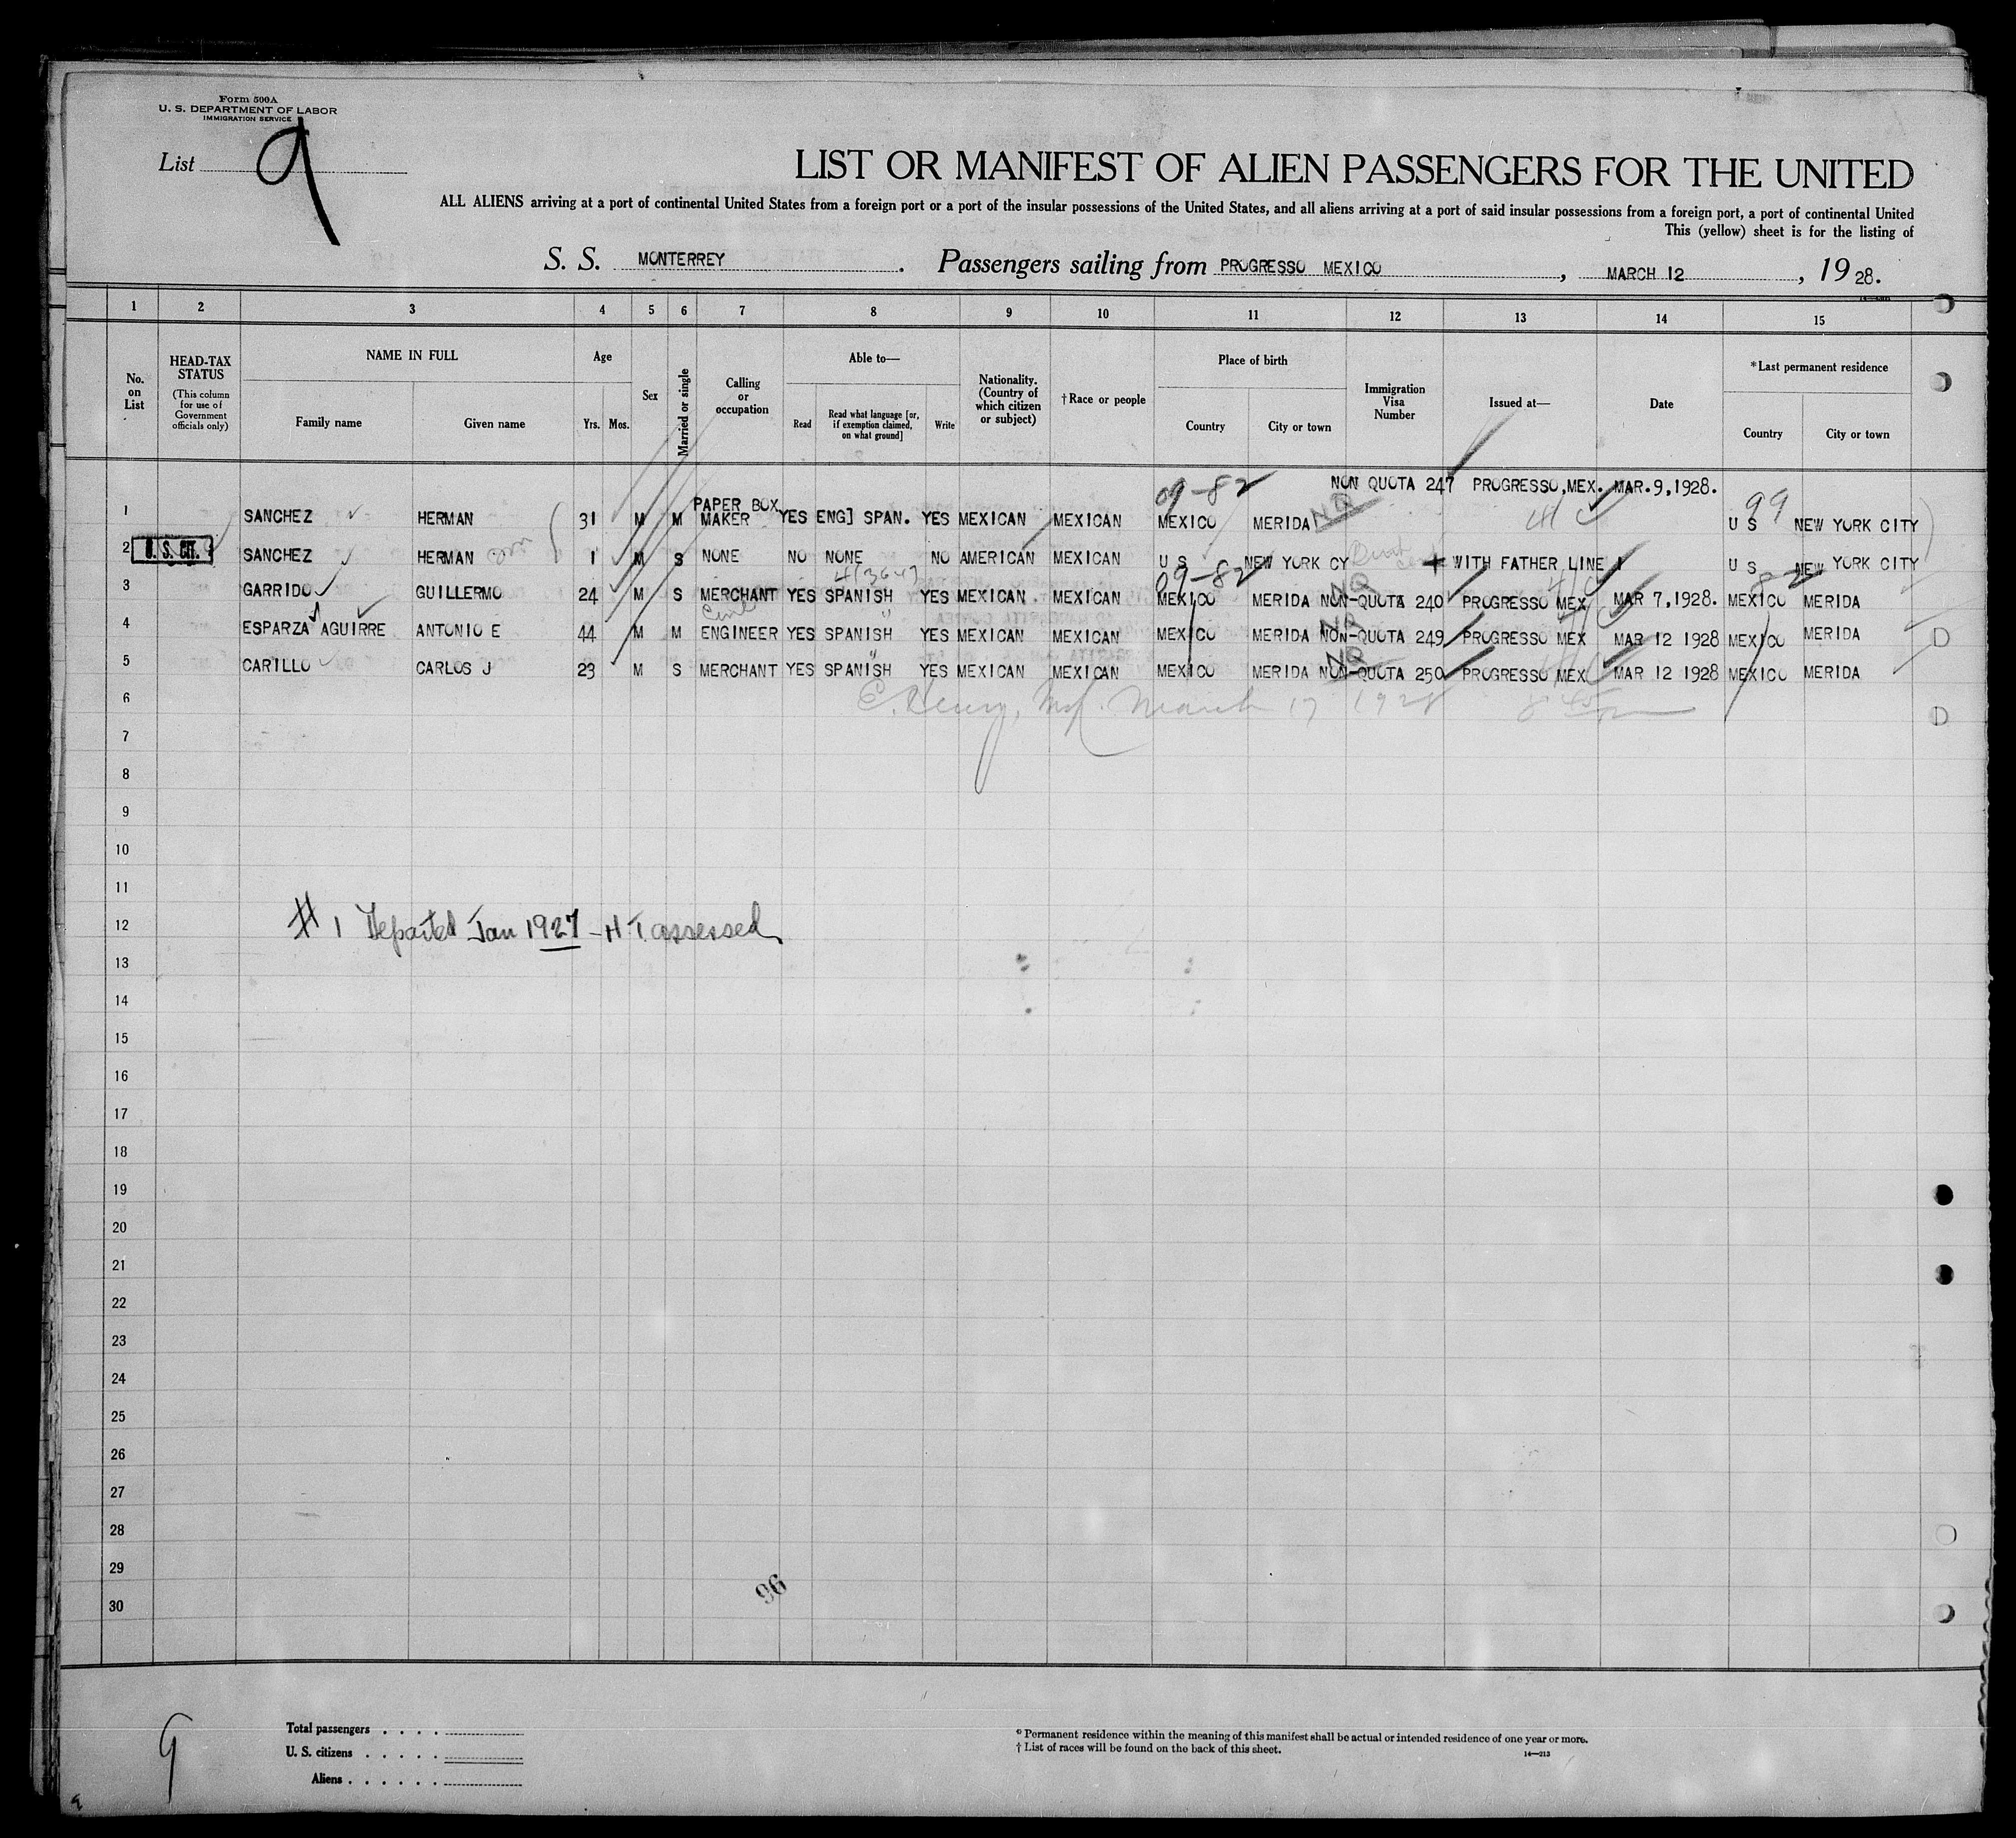 Form 500A
U. S. DEPARTMENT OF LABOR
IMMIGRATION SERVICE
List 9
LIST OR MANIFEST OF ALIEN PASSENGERS FOR THE UNITED
ALL ALIENS arriving at a port of continental United States from a foreign port or a port of the insular possessions of the United States, and all aliens arriving at a port of said insular possessions from a foreign port, a port of continental United
This (yellow) sheet is for the listing of
S. S. MONTERREY . Passengers sailing from PROGRESSO MEXICO , MARCH 12 , 19 28.
1 2 3 4 5 6 7 8 9 10 11 12 13 14 15
No. on List
HEAD-TAX STATUS
(This column for use of Government officials only)
NAME IN FULL
Family name Given name
Age
Yrs. Mos.
Sex
Married or single
Calling or occupation
Able to—
Read Read what language [or, if exemption claimed, on what ground] Write
Nationality. (Country of which citizen or subject)
†Race or people
Place of birth
Country City or town
Immigration Visa Number
Issued at—
Date
*Last permanent residence
Country City or town
09-82 NON QUOTA 247 PROGRESSO, MEX. MAR. 9, 1928. 99
1 SANCHEZ HERMAN 31 M M PAPER BOX MAKER YES ENG] SPAN. YES MEXICAN MEXICAN MEXICO MERIDA NQ U S NEW YORK CITY
2 U. S. CIT. SANCHEZ HERMAN 1 M S NONE NO NONE NO AMERICAN MEXICAN U S NEW YORK CY + WITH FATHER LINE 1 U S NEW YORK CITY
09-82 82
3 GARRIDO GUILLERMO 24 M S MERCHANT YES SPANISH YES MEXICAN MEXICAN MEXICO MERIDA NON-QUOTA 240 PROGRESSO MEX MAR 7, 1928. MEXICO MERIDA
4 ESPARZA AGUIRRE ANTONIO E 44 M M Civil ENGINEER YES SPANISH YES MEXICAN MEXICAN MEXICO MERIDA NON-QUOTA 249 PROGRESSO MEX MAR 12 1928 MEXICO MERIDA D
5 CARILLO CARLOS J 23 M S MERCHANT YES SPANISH YES MEXICAN MEXICAN MEXICO MERIDA NON-QUOTA 250 PROGRESSO MEX MAR 12 1928 MEXICO MERIDA
6 March 17 1928 D
7
8
9
10
11
12 # 1 Departed Jan 1927 - H T. assessed
13
14
15
16
17
18
19
20
21
22
23
24
25
26
27
28
29
30
96
9
Total passengers . . . .
U. S. citizens . . . . .
Aliens . . . . . .
* Permanent residence within the meaning of this manifest shall be actual or intended residence of one year or more.
† List of races will be found on the back of this sheet.
14—213